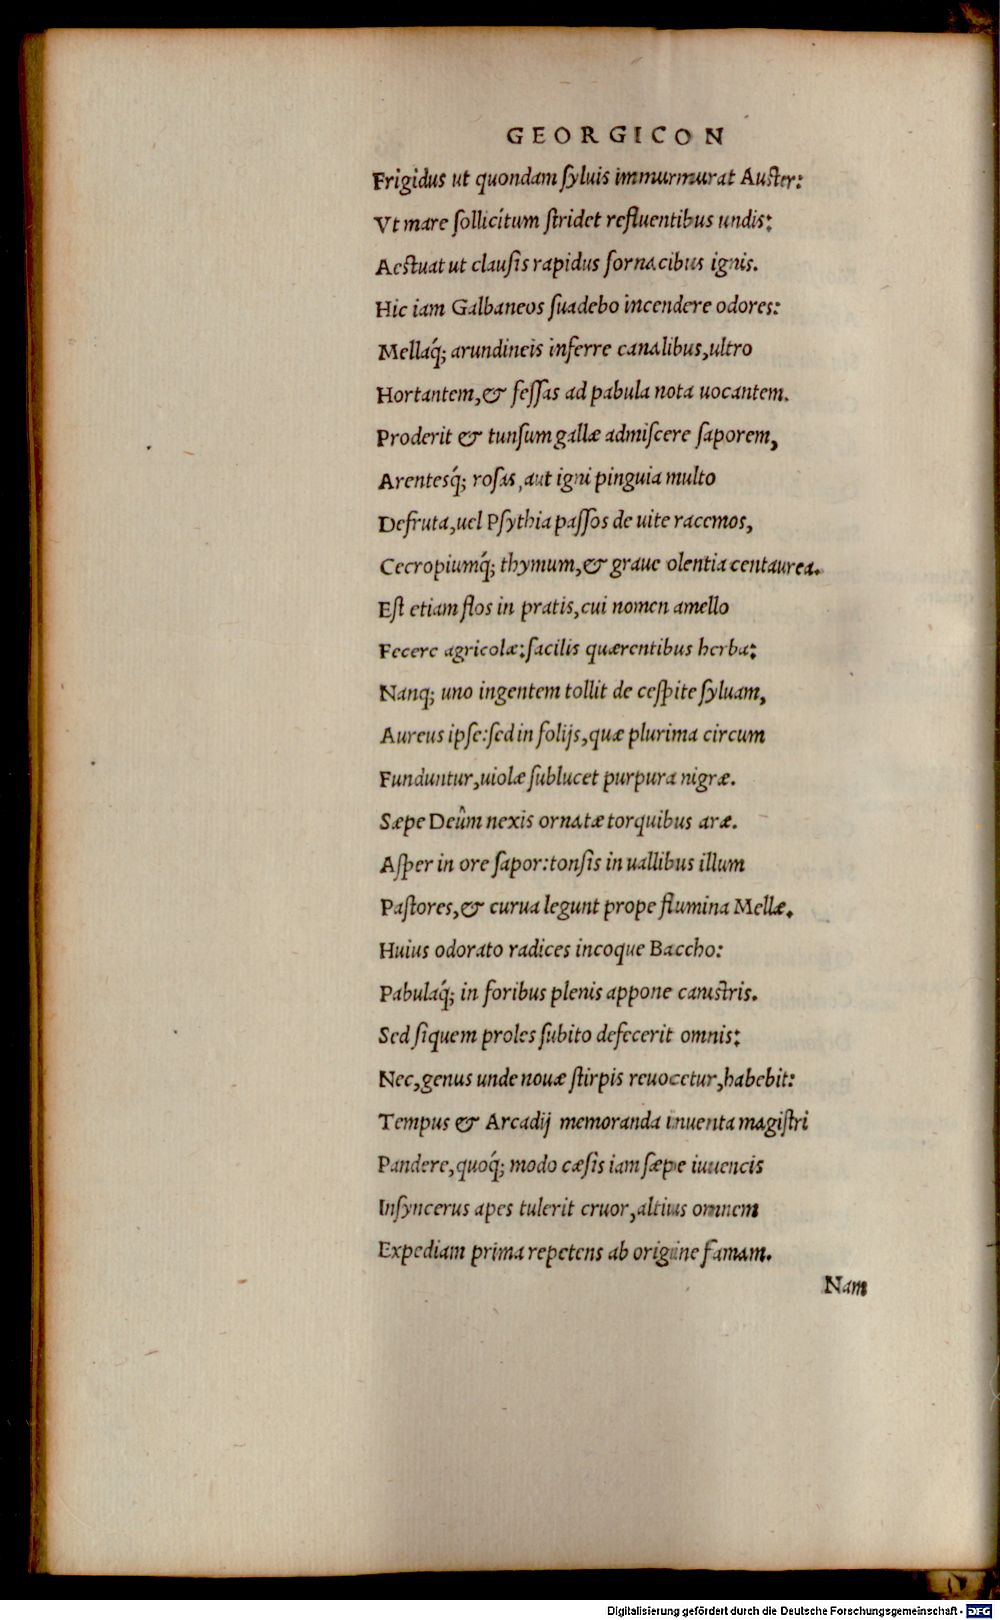 GEORGICON
Frigidus ut quondam ſyluis immurmurat Auster:
Vt mare ſollicitum ſtridet refluentibus undis:
Aestuat ut clauſis rapidus fornacibus ignis.
Hic iam Galbaneos ſuadebo incendere odores:
Mellaq́; arundineis inferre canalibus,ultro
Hortantem,& feſſas ad pabula nota uocantem.
Proderit & tunſum gallæ admiſcere ſaporem,
Arentesq́; roſas,aut igni pinguia multo
Defruta,uel Pſythia paſſos de uite racemos,
Cecropiumq́; thymum,& graue olentia centaurea.
Eſt etiam flos in pratis,cui nomen amello
Fecere agricolæ:facilis quærentibus herba:
Nanq; uno ingentem tollit de ceſpite ſyluam,
Aureus ipſe:ſed in folijs,quæ plurima circum
Funduntur,uiolæ ſublucet purpura nigræ.
Sæpe Deûm nexis ornatæ torquibus aræ.
Aſper in ore ſapor:tonſis in uallibus illum
Paſtores,& curua legunt prope flumina Mellæ.
Huius odorato radices incoque Baccho:
Pabulaq́; in foribus plenis appone canistris.
Sed ſiquem proles ſubito defecerit omnis:
Nec,genus unde nouæ ſtirpis reuocetur,habebit:
Tempus & Arcadij memoranda inuenta magiſtri
Pandere,quoq́; modo cæſis iam ſæpe iuuencis
Inſyncerus apes tulerit cruor,altius omnem
Expediam prima repetens ab origine famam.
Nam
Digitalisierung gefördert durch die Deutsche Forschungsgemeinschaft - DFG